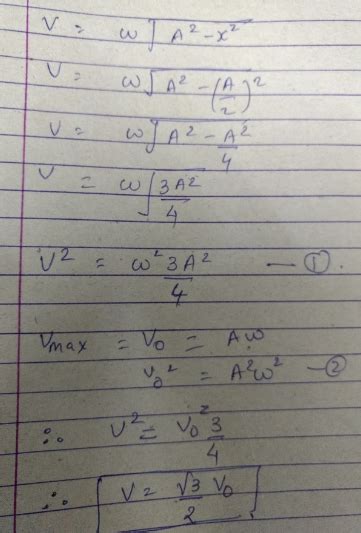 V = ω√(A² - x²)
V = ω√(A² - (A/2)²)
V = ω√(A² - A²/4)
V = ω√(3A²/4)
V² = ω² 3A²/4 — ①.
Vmax = V₀ = Aω
V₀² = A²ω² — ②
∴ V² = V₀² 3/4
∴ V = √3/2 V₀